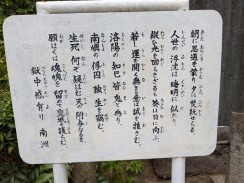 朝に恩遇を蒙り夕に焚阬せらる
人世の浮沈は晦明に似たり
縦え光を回らさざるも葵は日に向ふ
若し運を開く無きも意は誠を推さむ
洛陽の知己皆鬼と為り
南嶼の俘囚独り生を窃む
生死何ぞ疑はむ天の附与なるを
願はくは魂魄を留めて皇城を護らむ
獄中感有り 南洲